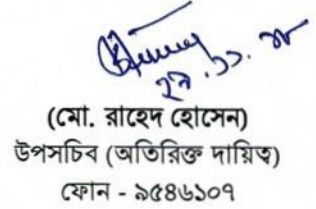 ২৭.১১.১৮
(মো. রাহেদ হোসেন)
উপসচিব (অতিরিক্ত দায়িত্ব)
ফোন - ৯৫৪৬১০৭